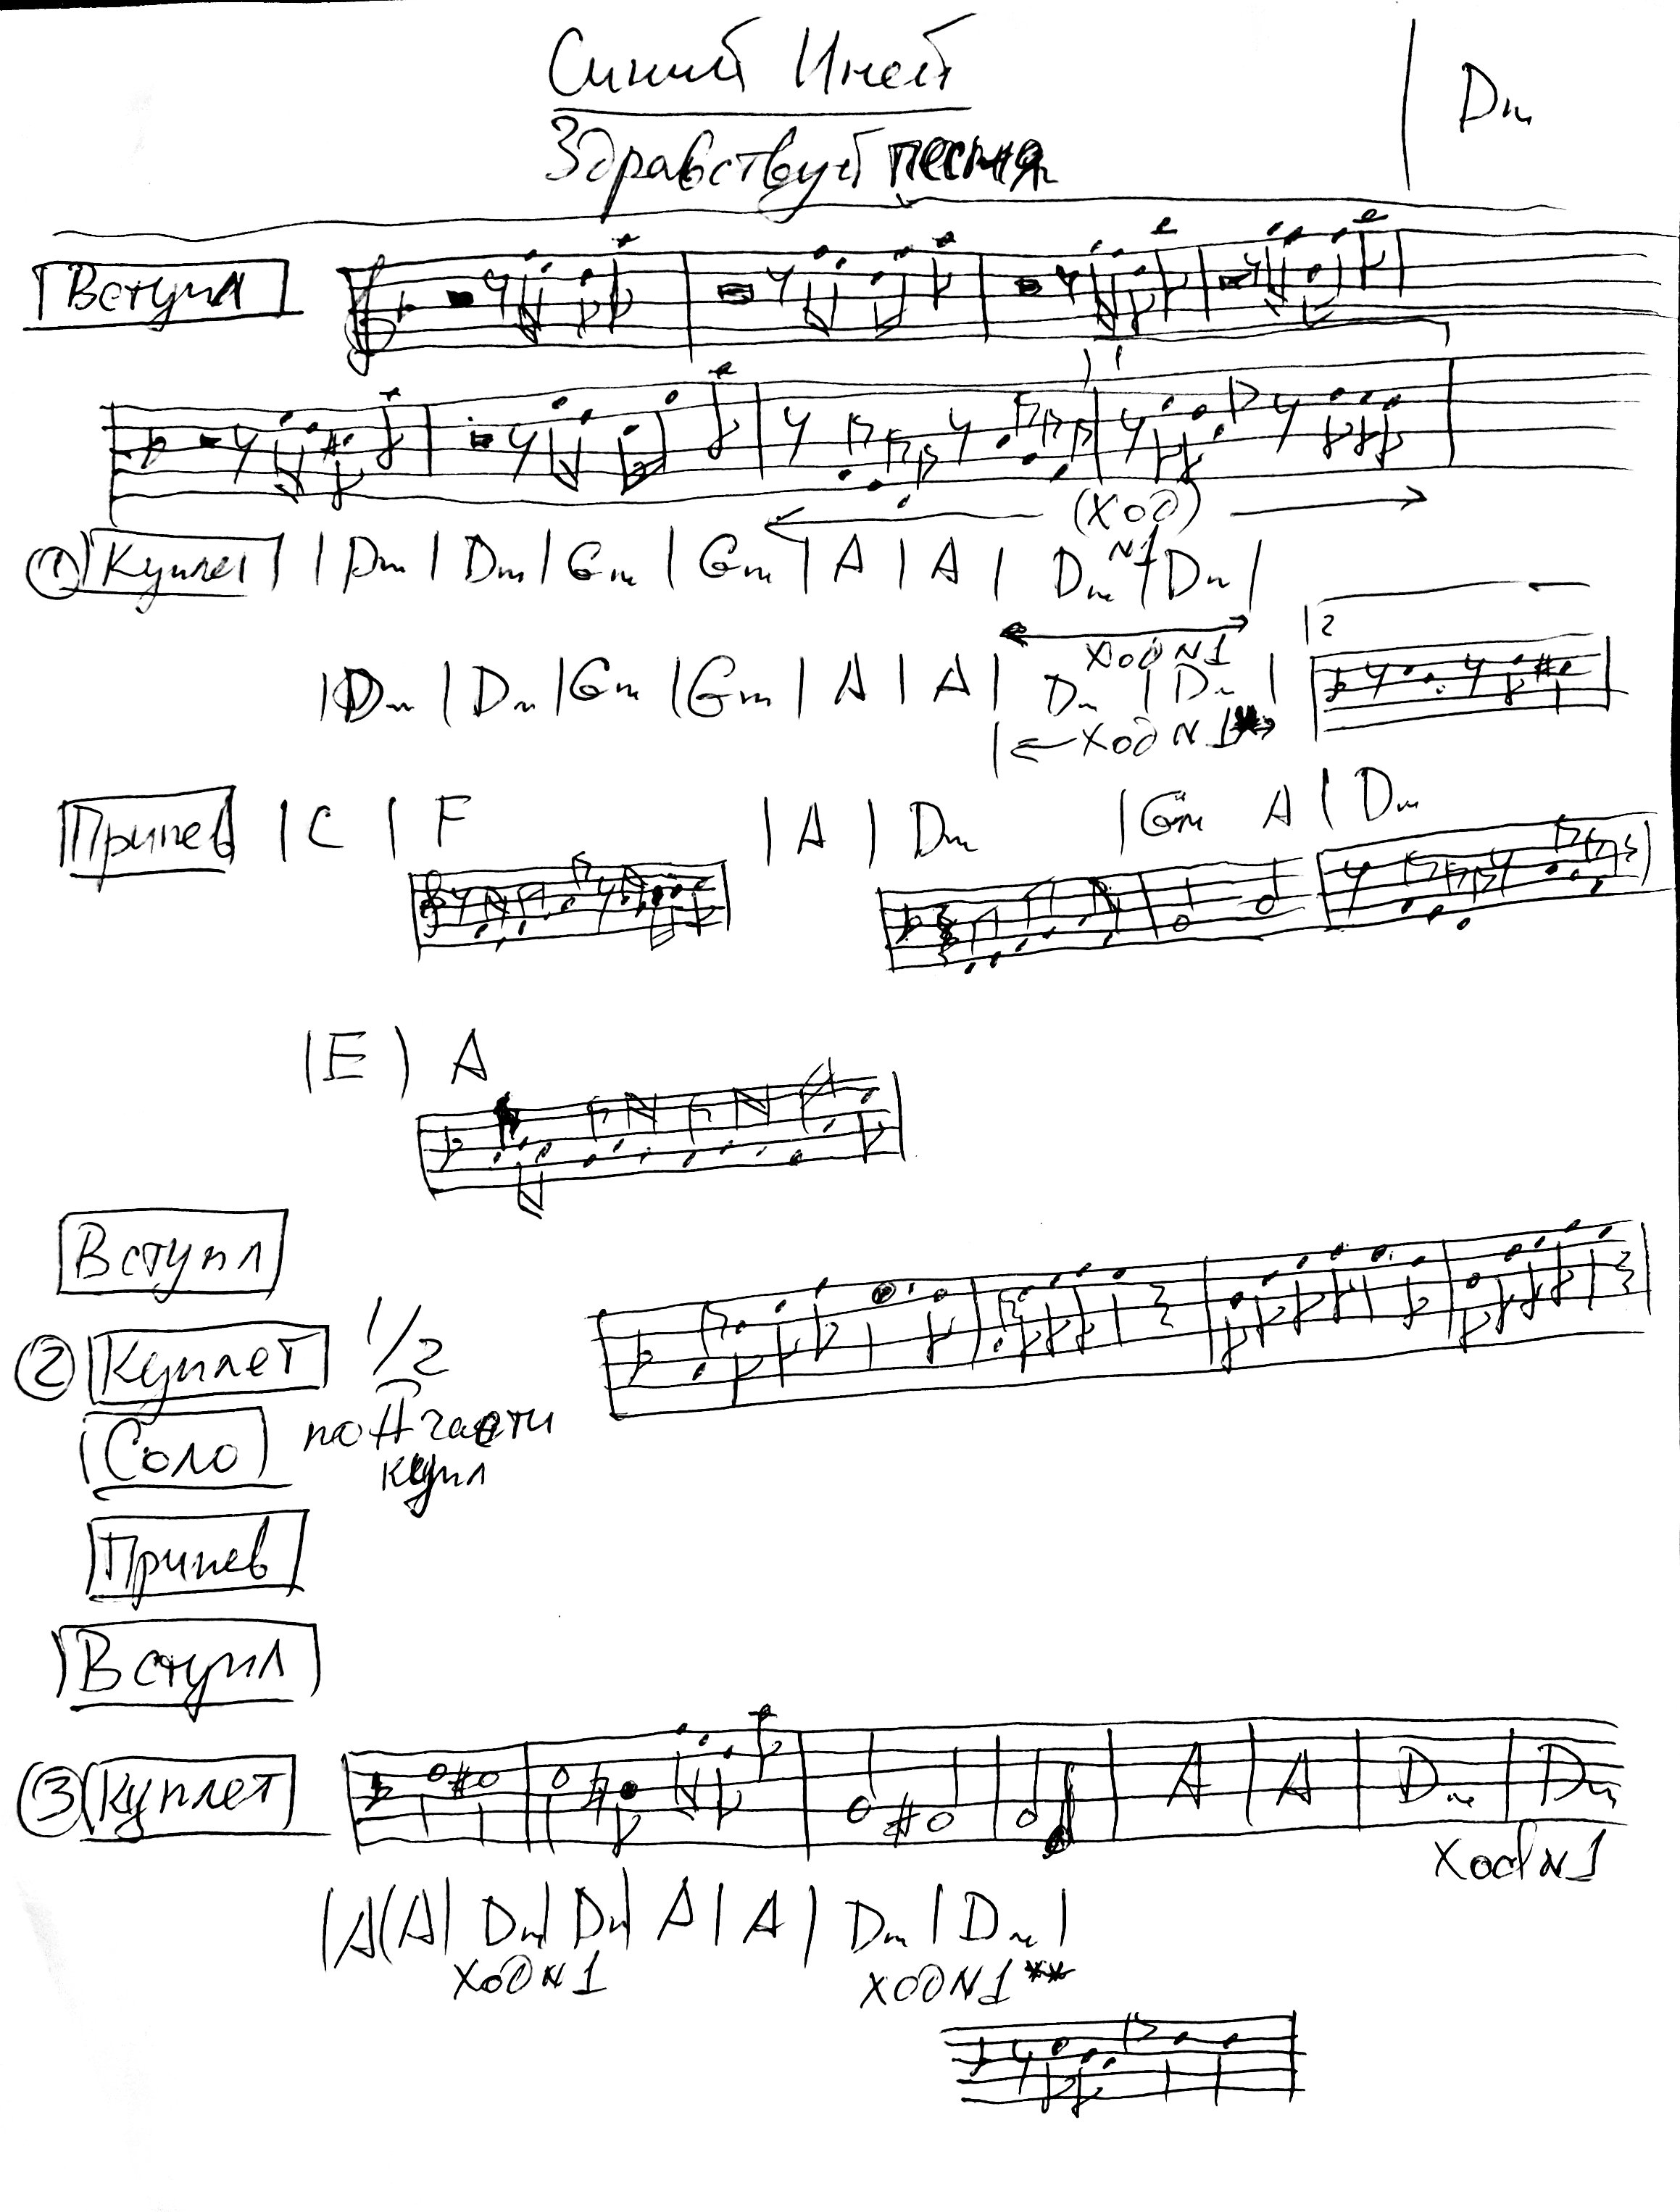 Синий Иней
Здравствуй песня
Dm
Вступл
(ход)
N1
① Куплет | Dm | Dm | Gm | Gm | A | A | Dm | Dm |
ход N1
| Dm | Dm | Gm | Gm | A | A | Dm | Dm | 2
ход N1*
Припев | C | F | A | Dm | Gm A | Dm
| E | A
Вступл
② Куплет 1/2
Соло по II части
купл
Припев
Вступл
③ Куплет A | A | Dm | Dm
ход N1
| A | A | Dm | Dm | A | A | Dm | Dm |
ход N1 ход N1**